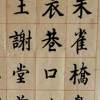 朱雀橋
衣巷口
王謝堂前